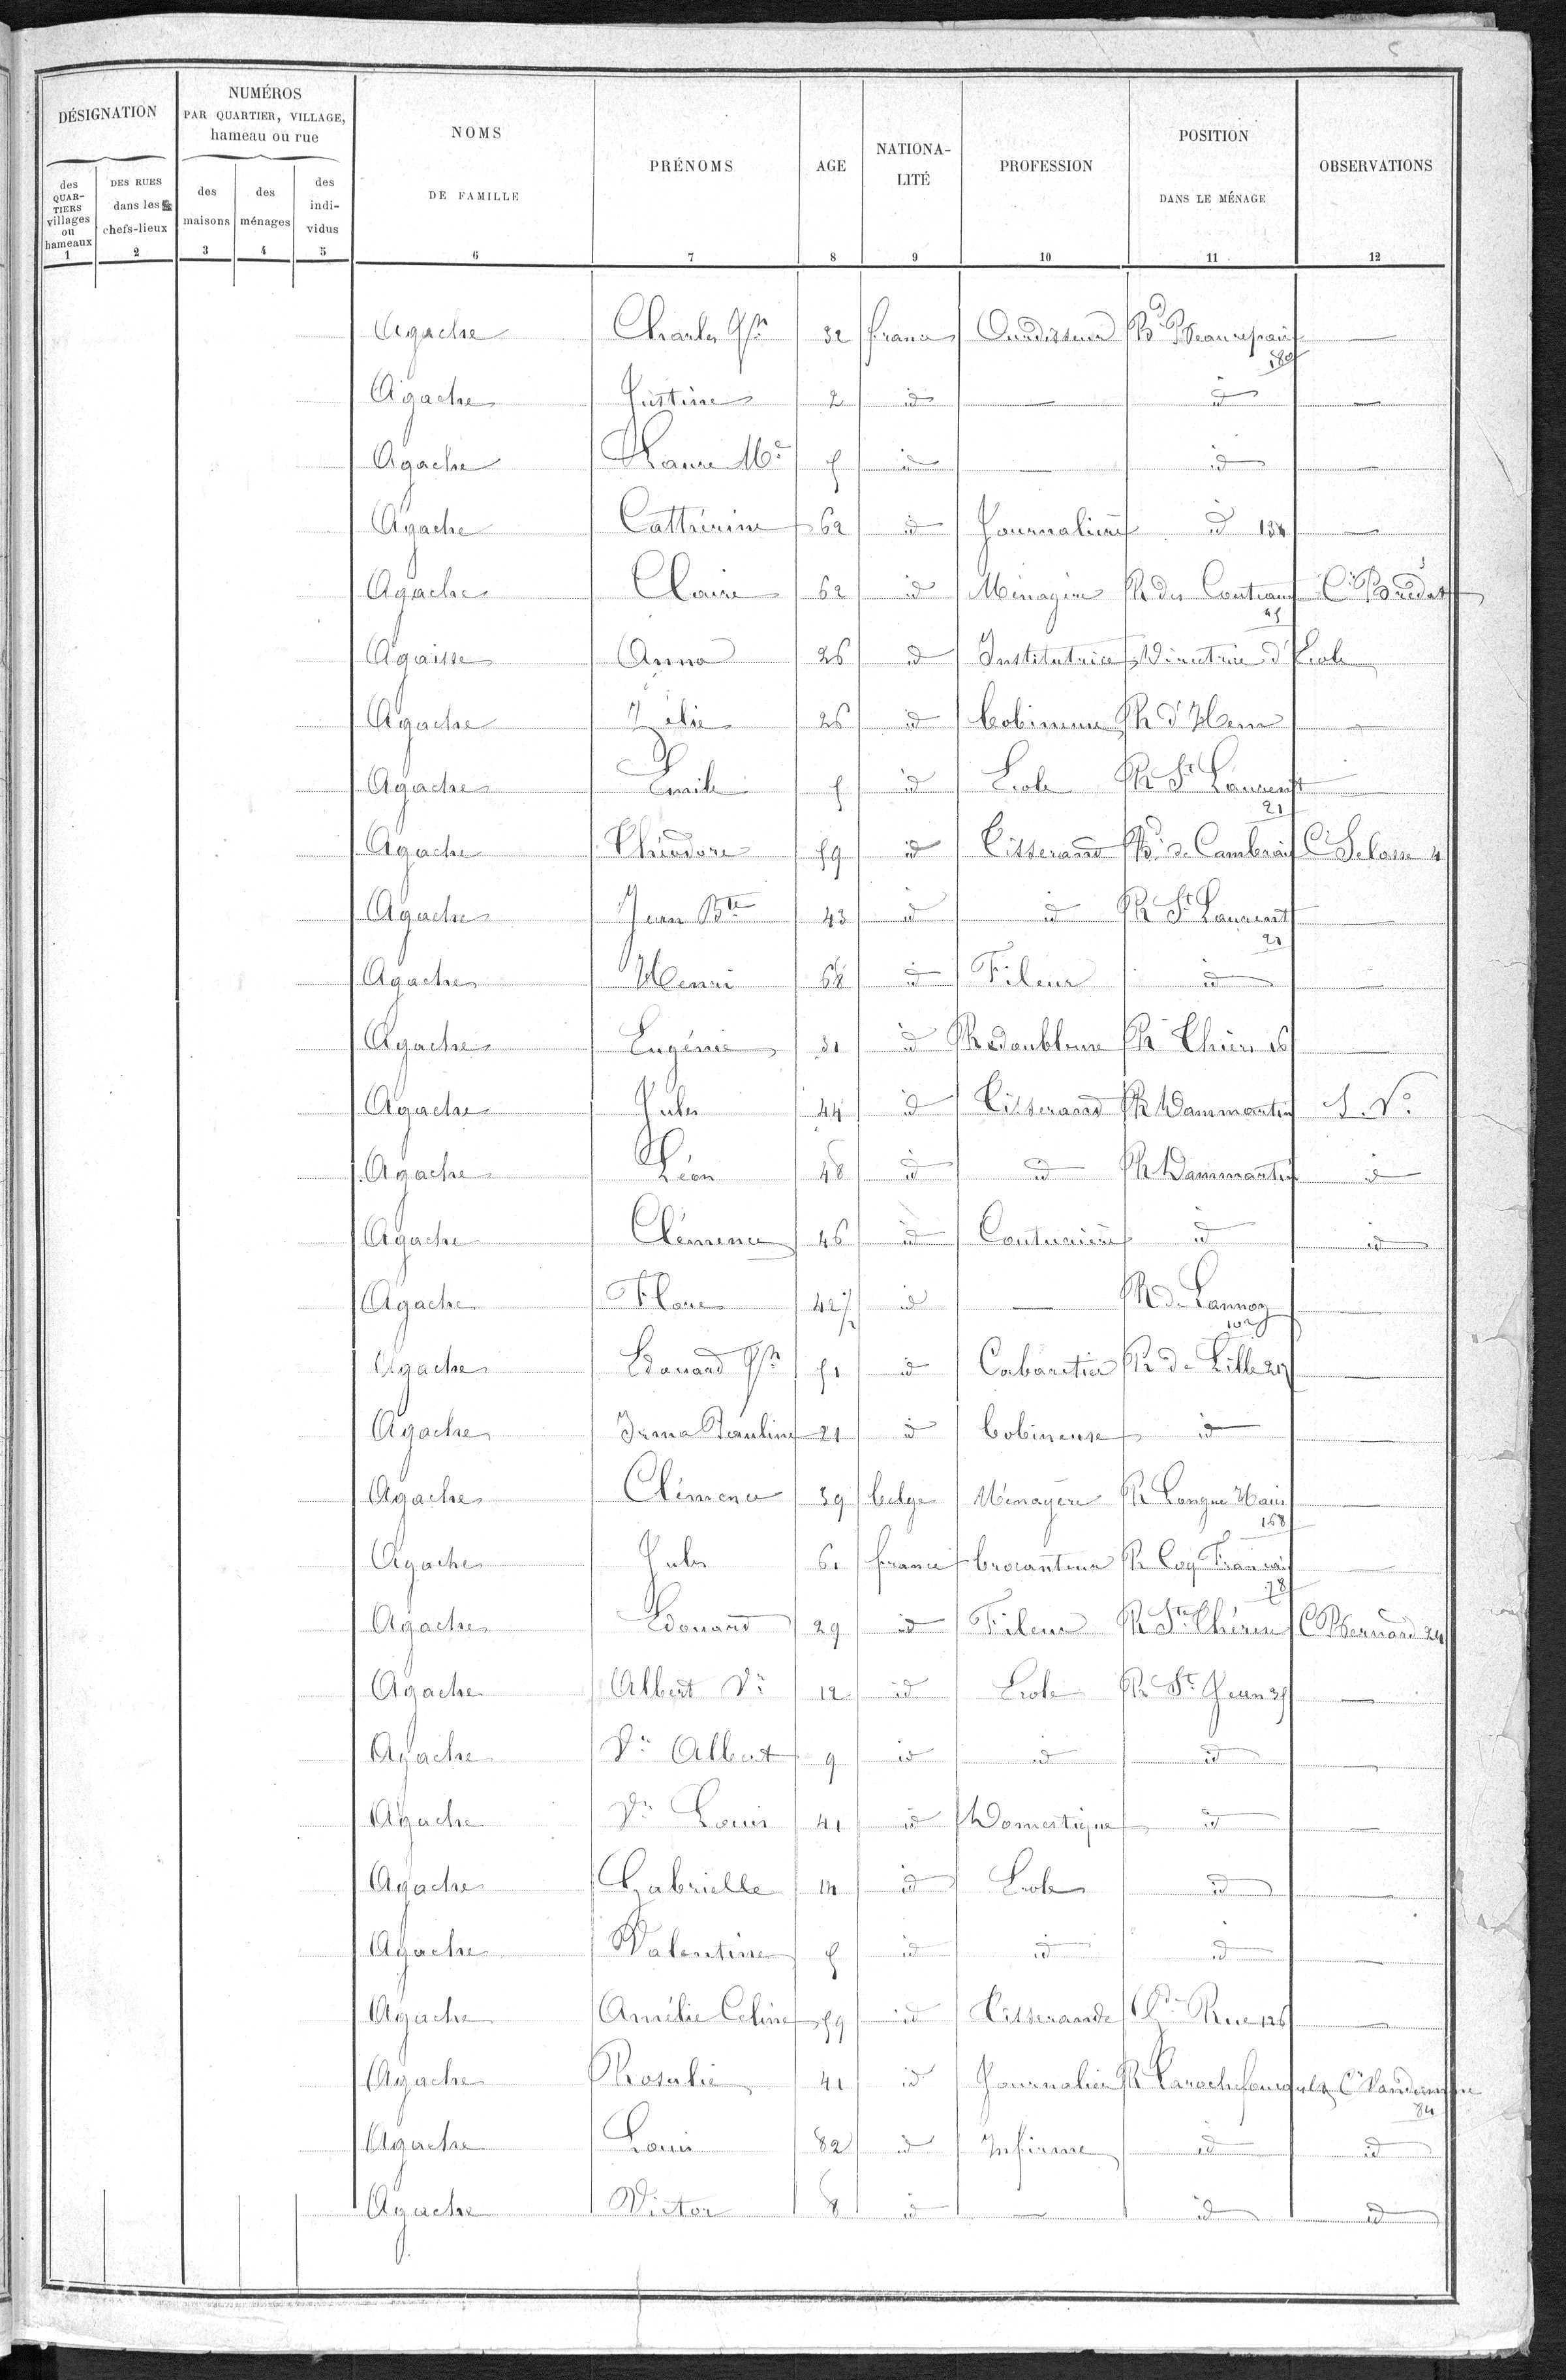 5
DÉSIGNATION
NUMÉROS
PAR QUARTIER, VILLAGE,
hameau ou rue
NOMS
DE FAMILLE
PRÉNOMS
AGE
NATIONA-
LITÉ
PROFESSION
POSITION
DANS LE MÉNAGE
OBSERVATIONS
des QUAR-TIERS villages ou hameaux
DES RUES dans les chefs-lieux
des maisons
des ménages
des indi-vidus
1 2 3 4 5 6 7 8 9 10 11 12
Agache Charles Jph 32 france Ourdisseur Bd Beaurepaire —
180
Agache Justine 2 id — id —
Agache Laure Me 5 id — id —
Agache Cathérine 62 id Journalière id 134 —
Agache Claire 62 id Ménagère R des Couteaux
Agaisse Anna 26 id Institutrice Directrice d'Ecole
Agache Zélie 26 id bobineuse R d'Hem —
Agache Emile 5 id Ecole R St Laurent —
21
Agache Théodore 59 id Tisserand Bd de Cambrai Cr Selosse 4
Agache Jean Bte 43 id id R St Laurent —
21
Agache Henri 68 id Fileur id —
Agache Eugénie 31 id Redoubleuse R Thiers 16 —
Agache Jules 44 id Tisserand R Dammartin S. No
Agache Léon 48 id id R Dammartin id
Agache Clémence 46 id Couturière id id
Agache Flore 42 id — R de Lannoy —
102
Agache Edouard Jph 51 id Cabaretier R de Lille —
Agache Irma Pauline 21 id bobineuse id —
Agache Clémence 39 belge Ménagère R Longue Haie —
168
Agache Jules 61 france brocanteur R Coq Français —
78
Agache Edouard 29 id Fileur R Ste Thérèse C Bernard 24
Agache Albert Vr 12 id Ecole R St Jean 35 —
Agache Vr Albert 9 id id id —
Agache Vr Louis 41 id Domestique id —
Agache Gabrielle 14 id Ecole id —
Agache Valentine 5 id id id —
Agache Amélie Celine 59 id Tisserande Gde Rue 126 —
Agache Rosalie 41 id Journalière R Larochefoucauld
84
Agache Louis 82 id Infirme id id
Agache Victor 8 id — id id